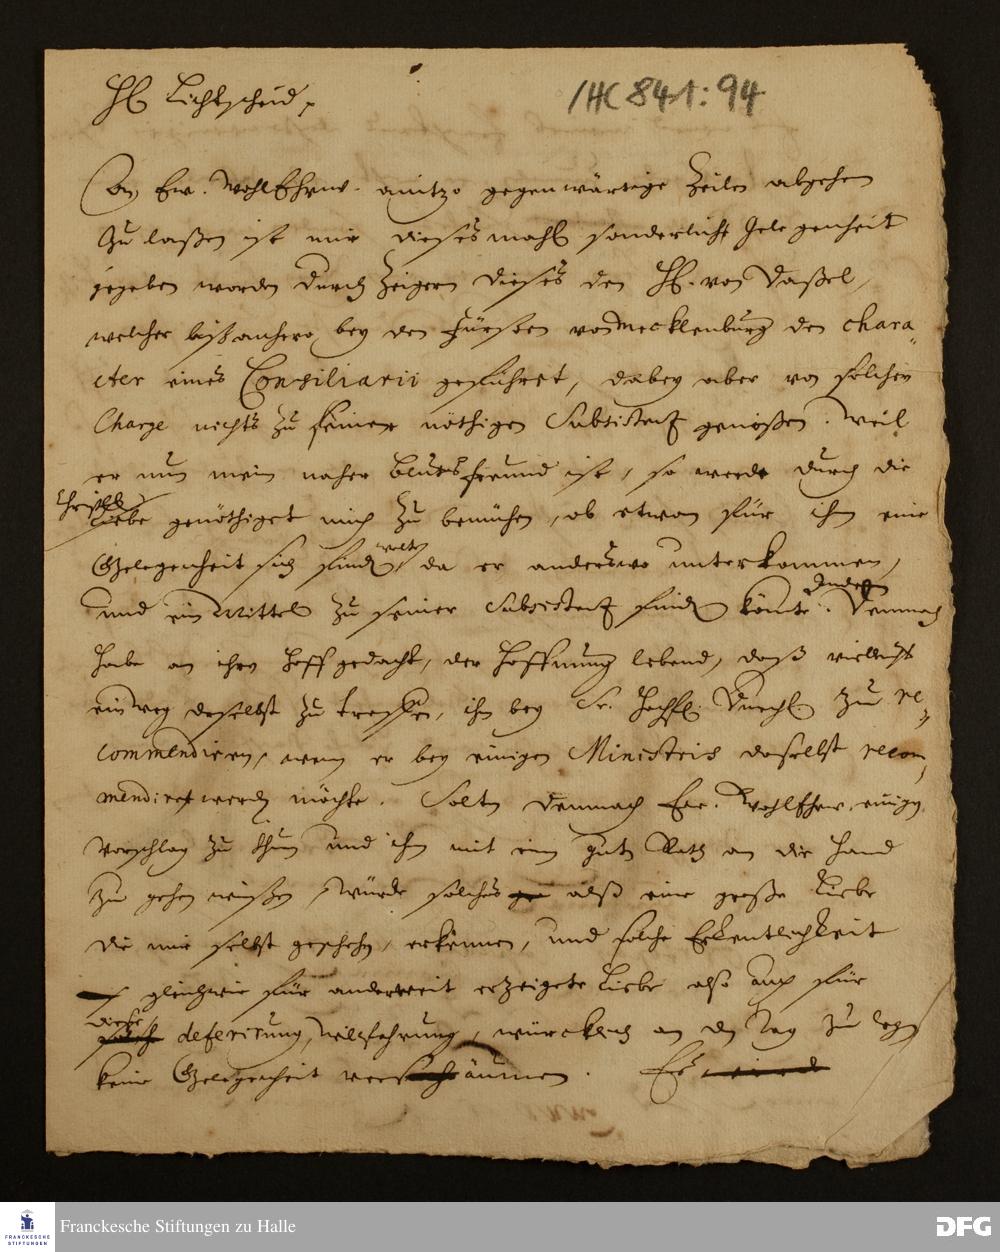 H. Lichtscheid,
/HC 841: 94
An Ew. WohlEhrw. anitzo gegenwärtige Zeilen abgehen
zu laßen ist mir dieses mahl sonderlich Gelegenheit
gegeben worden durch Zeigern dieses den H. von Daßel,
welcher bißanhero bey den Fürsten von Mecklenburg den chara-
cter eines Consiliarii geführet, dabey aber von solcher
Charge nichts zu seiner nöthigen Subsistenz genoßen. Weil
er nun mein naher Blutsfreund ist, so werde durch die
Christl.
Liebe genöthiget mich zu bemühen, ob etwan für ihn eine
Gelegenheit sich finden wolte, da er anderswo unterkommen,
und ein Mittel zu seiner Subsistenz finden könte. Demnach
habe an ihren Hoff gedacht, der Hoffnung lebend, daß vielleicht
ein weg daselbst zu treffen, ihn bey Sr. Hochfl. Durchl. zu re-
commendiren, wenn er bey einigen Ministris daselbst recom-
mendiret werden möchte. Solten demnach Ew. WohlEhrw. einigen
Vorschlag zu thun und ihm mit ein guten Rath an die Hand
zu gehen wißen, würde solches alß eine große Liebe
die mir selbst geschehen, erkennen, und solche Erkentlichkeit
gleichwie für anderweit erzeigete Liebe also auch für
diese
deferirung, willfahrung, würcklich an den Tag zu legen
keine Gelegenheit versäumen. Er wird
Franckesche Stiftungen zu Halle
FRANCKESCHE
STIFTUNGEN
DFG